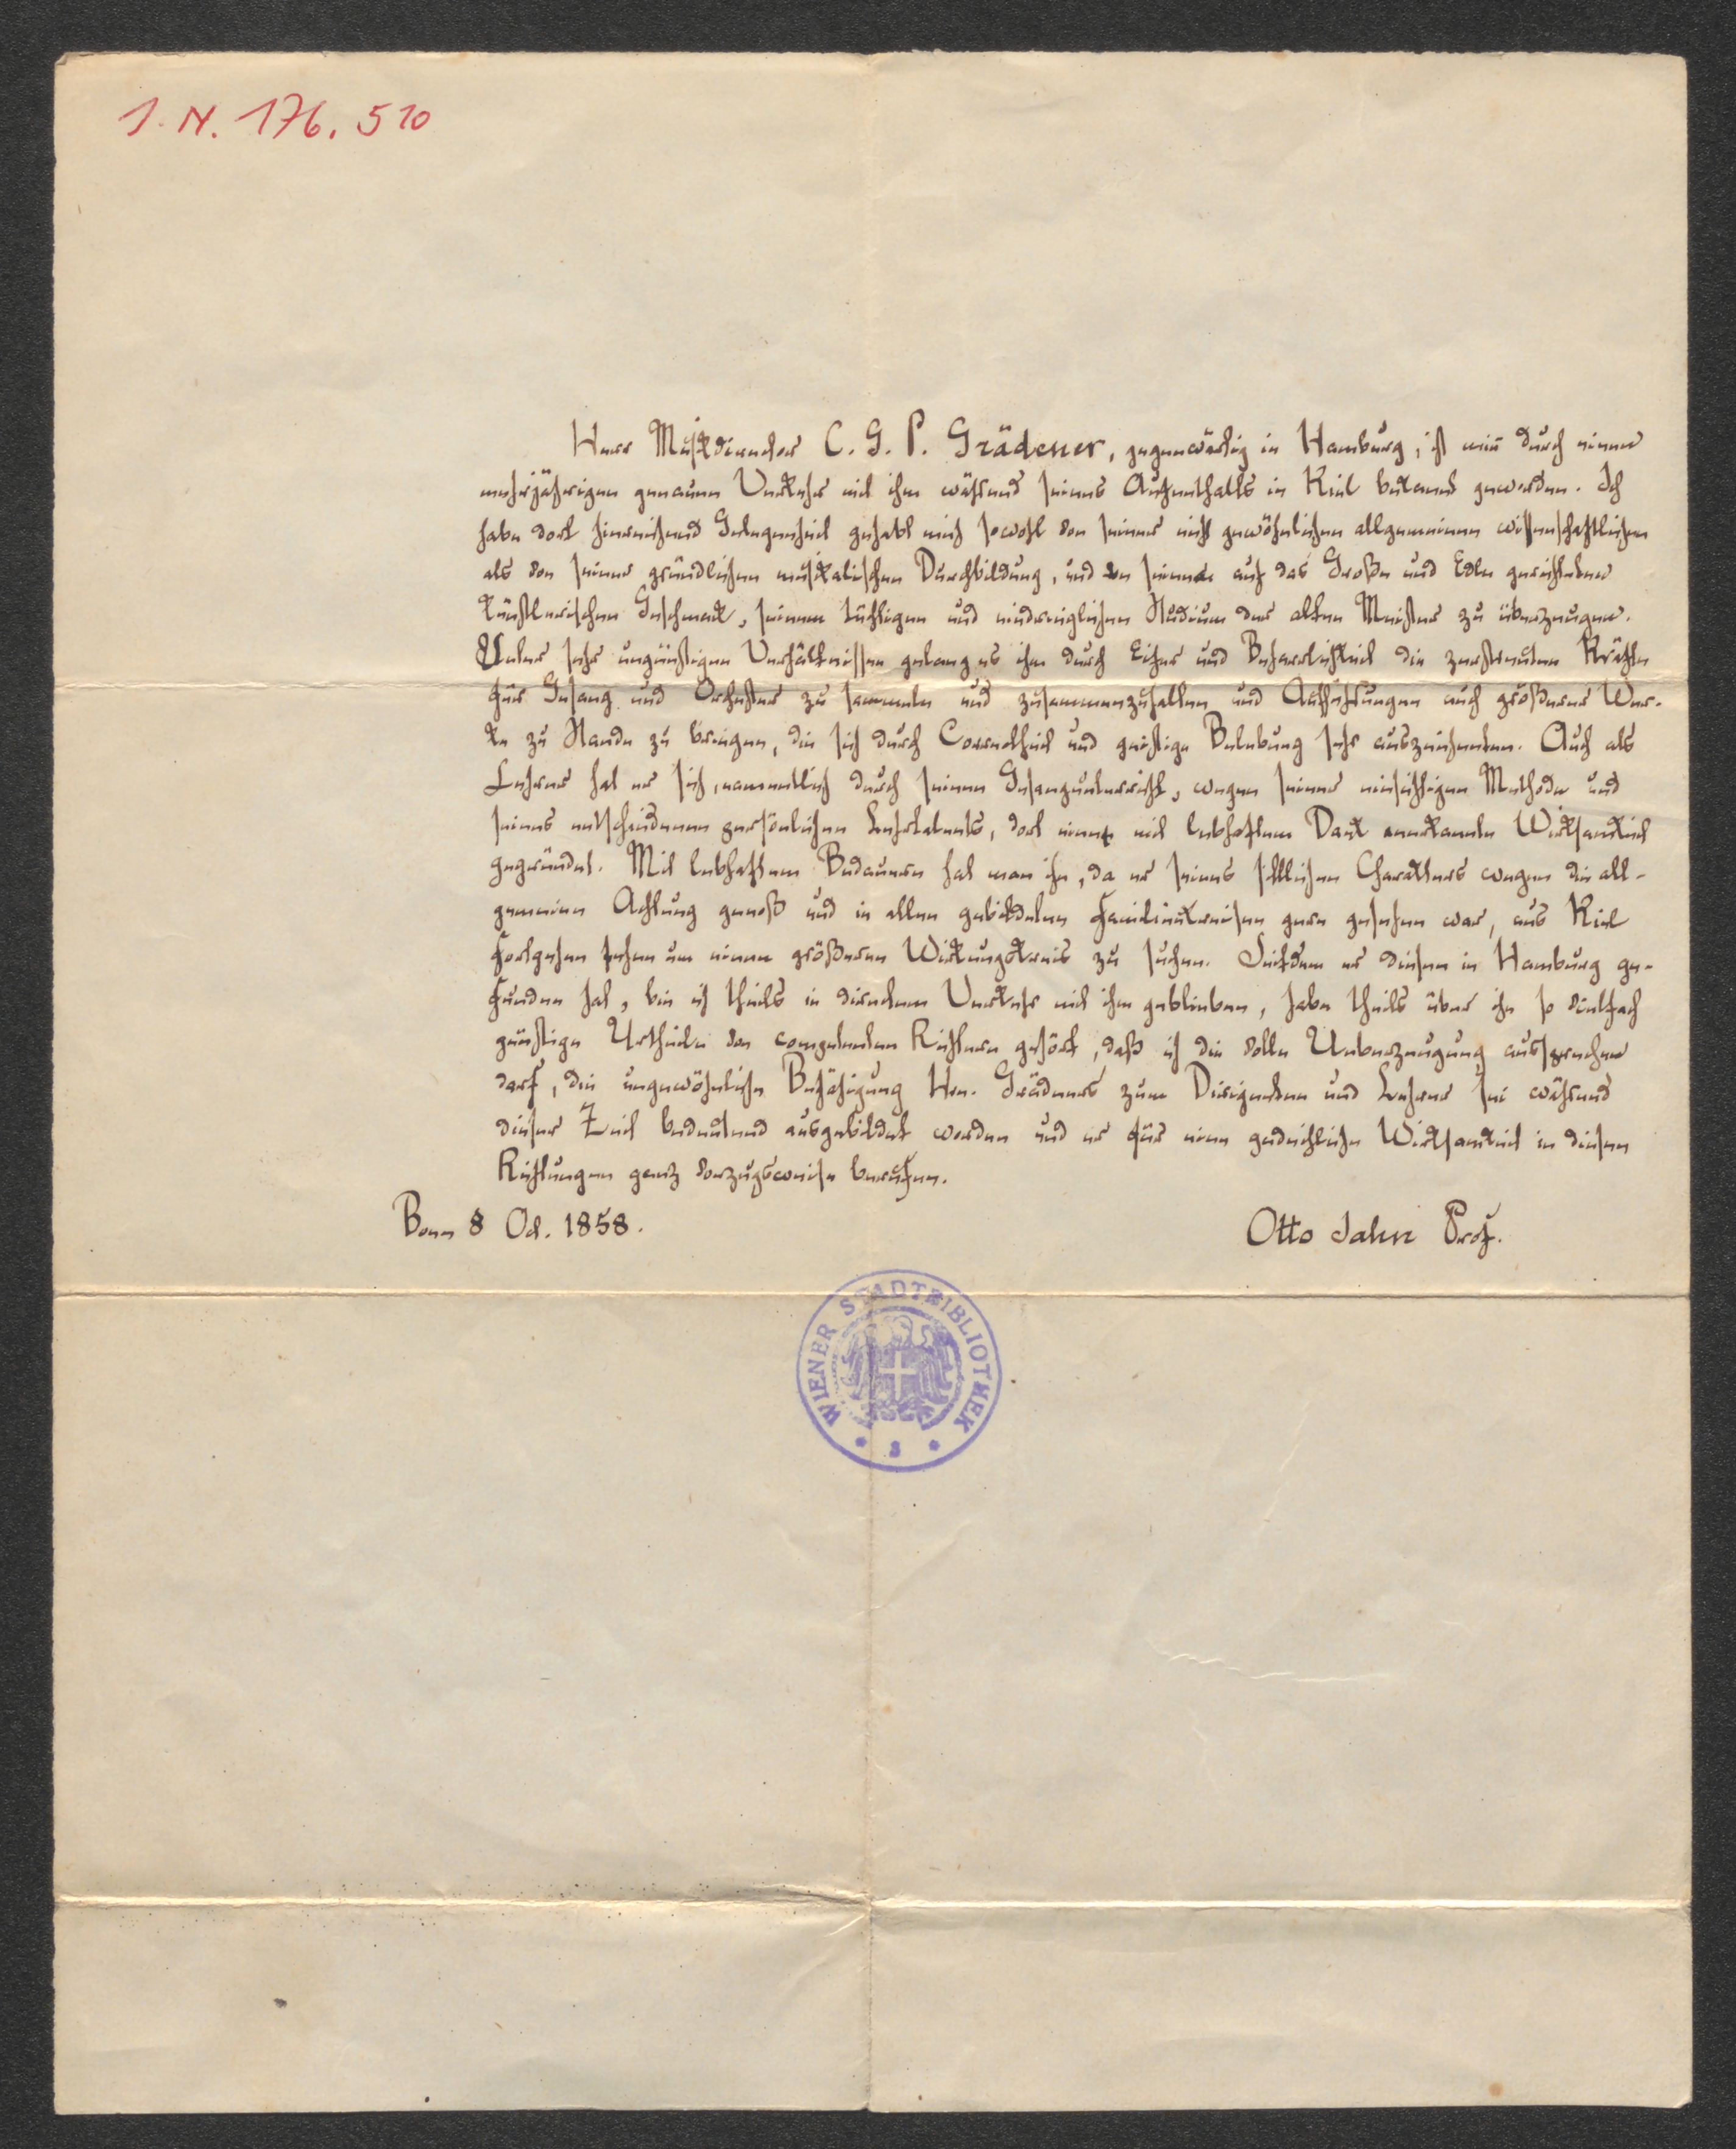 J. N. 176.510
Herr Musikdirector C. G. P. Grädener, gegenwärtig in Hamburg, ist mir durch einen
mehrjährigen genauen Verkehr mit ihm während seines Aufenthalts in Kiel bekannt geworden. Ich
habe dort hinreichend Gelegenheit gehabt mich sowohl von seiner nicht gewöhnlichen allgemeinen wissenschaftlichen
als von seiner gründlichen musikalischen Durchbildung, und von seinem auf das Große und Edle gerichteten
künstlerischen Geschmack, seinem tüchtigen und eindringlichen Studium der alten Meister zu überzeugen.
Unter sehr ungünstigen Verhältnissen gelang es ihm durch Eifer und Beharrlichkeit die zerstreuten Kräfte
für Gesang und Orchester zu sammeln und zusammenzuhalten und Aufführungen auch größerer Wer-
ke zu Stande zu bringen, die sich durch Correctheit und geistige Belebung sehr auszeichneten. Auch als
Lehrer hat er sich, namentlich durch seinen Gesangunterricht, wegen seiner einsichtigen Methode und
seines entschiedenen persönlichen Lehrtalents, dort eine mit lebhaftem Dank anerkannte Wirksamkeit
gegründet. Mit lebhaftem Bedauern hat man ihn, da er seines sittlichen Charakters wegen die all-
gemeine Achtung genoß und in allen gebildeten Familienkreisen gern gesehen war, aus Kiel
fortgehen sehen um einen größeren Wirkungskreis zu suchen. Seitdem er diesen in Hamburg ge-
funden hat, bin ich theils in directem Verkehr mit ihm geblieben, habe theils über ihn so vielfach
günstige Urtheile von competenten Richtern gehört, daß ich die volle Ueberzeugung aussprechen
darf, die ungewöhnliche Befähigung Hrn. Grädeners zum Dirigenten und Lehrer sei während
dieser Zeit bedeutend ausgebildet worden und er für eine gedeihliche Wirksamkeit in diesen
Richtungen ganz vorzugsweise berufen.
Bonn 8 Oct. 1858.
Otto Jahn Prof.
WIENER STADTBIBLIOTHEK